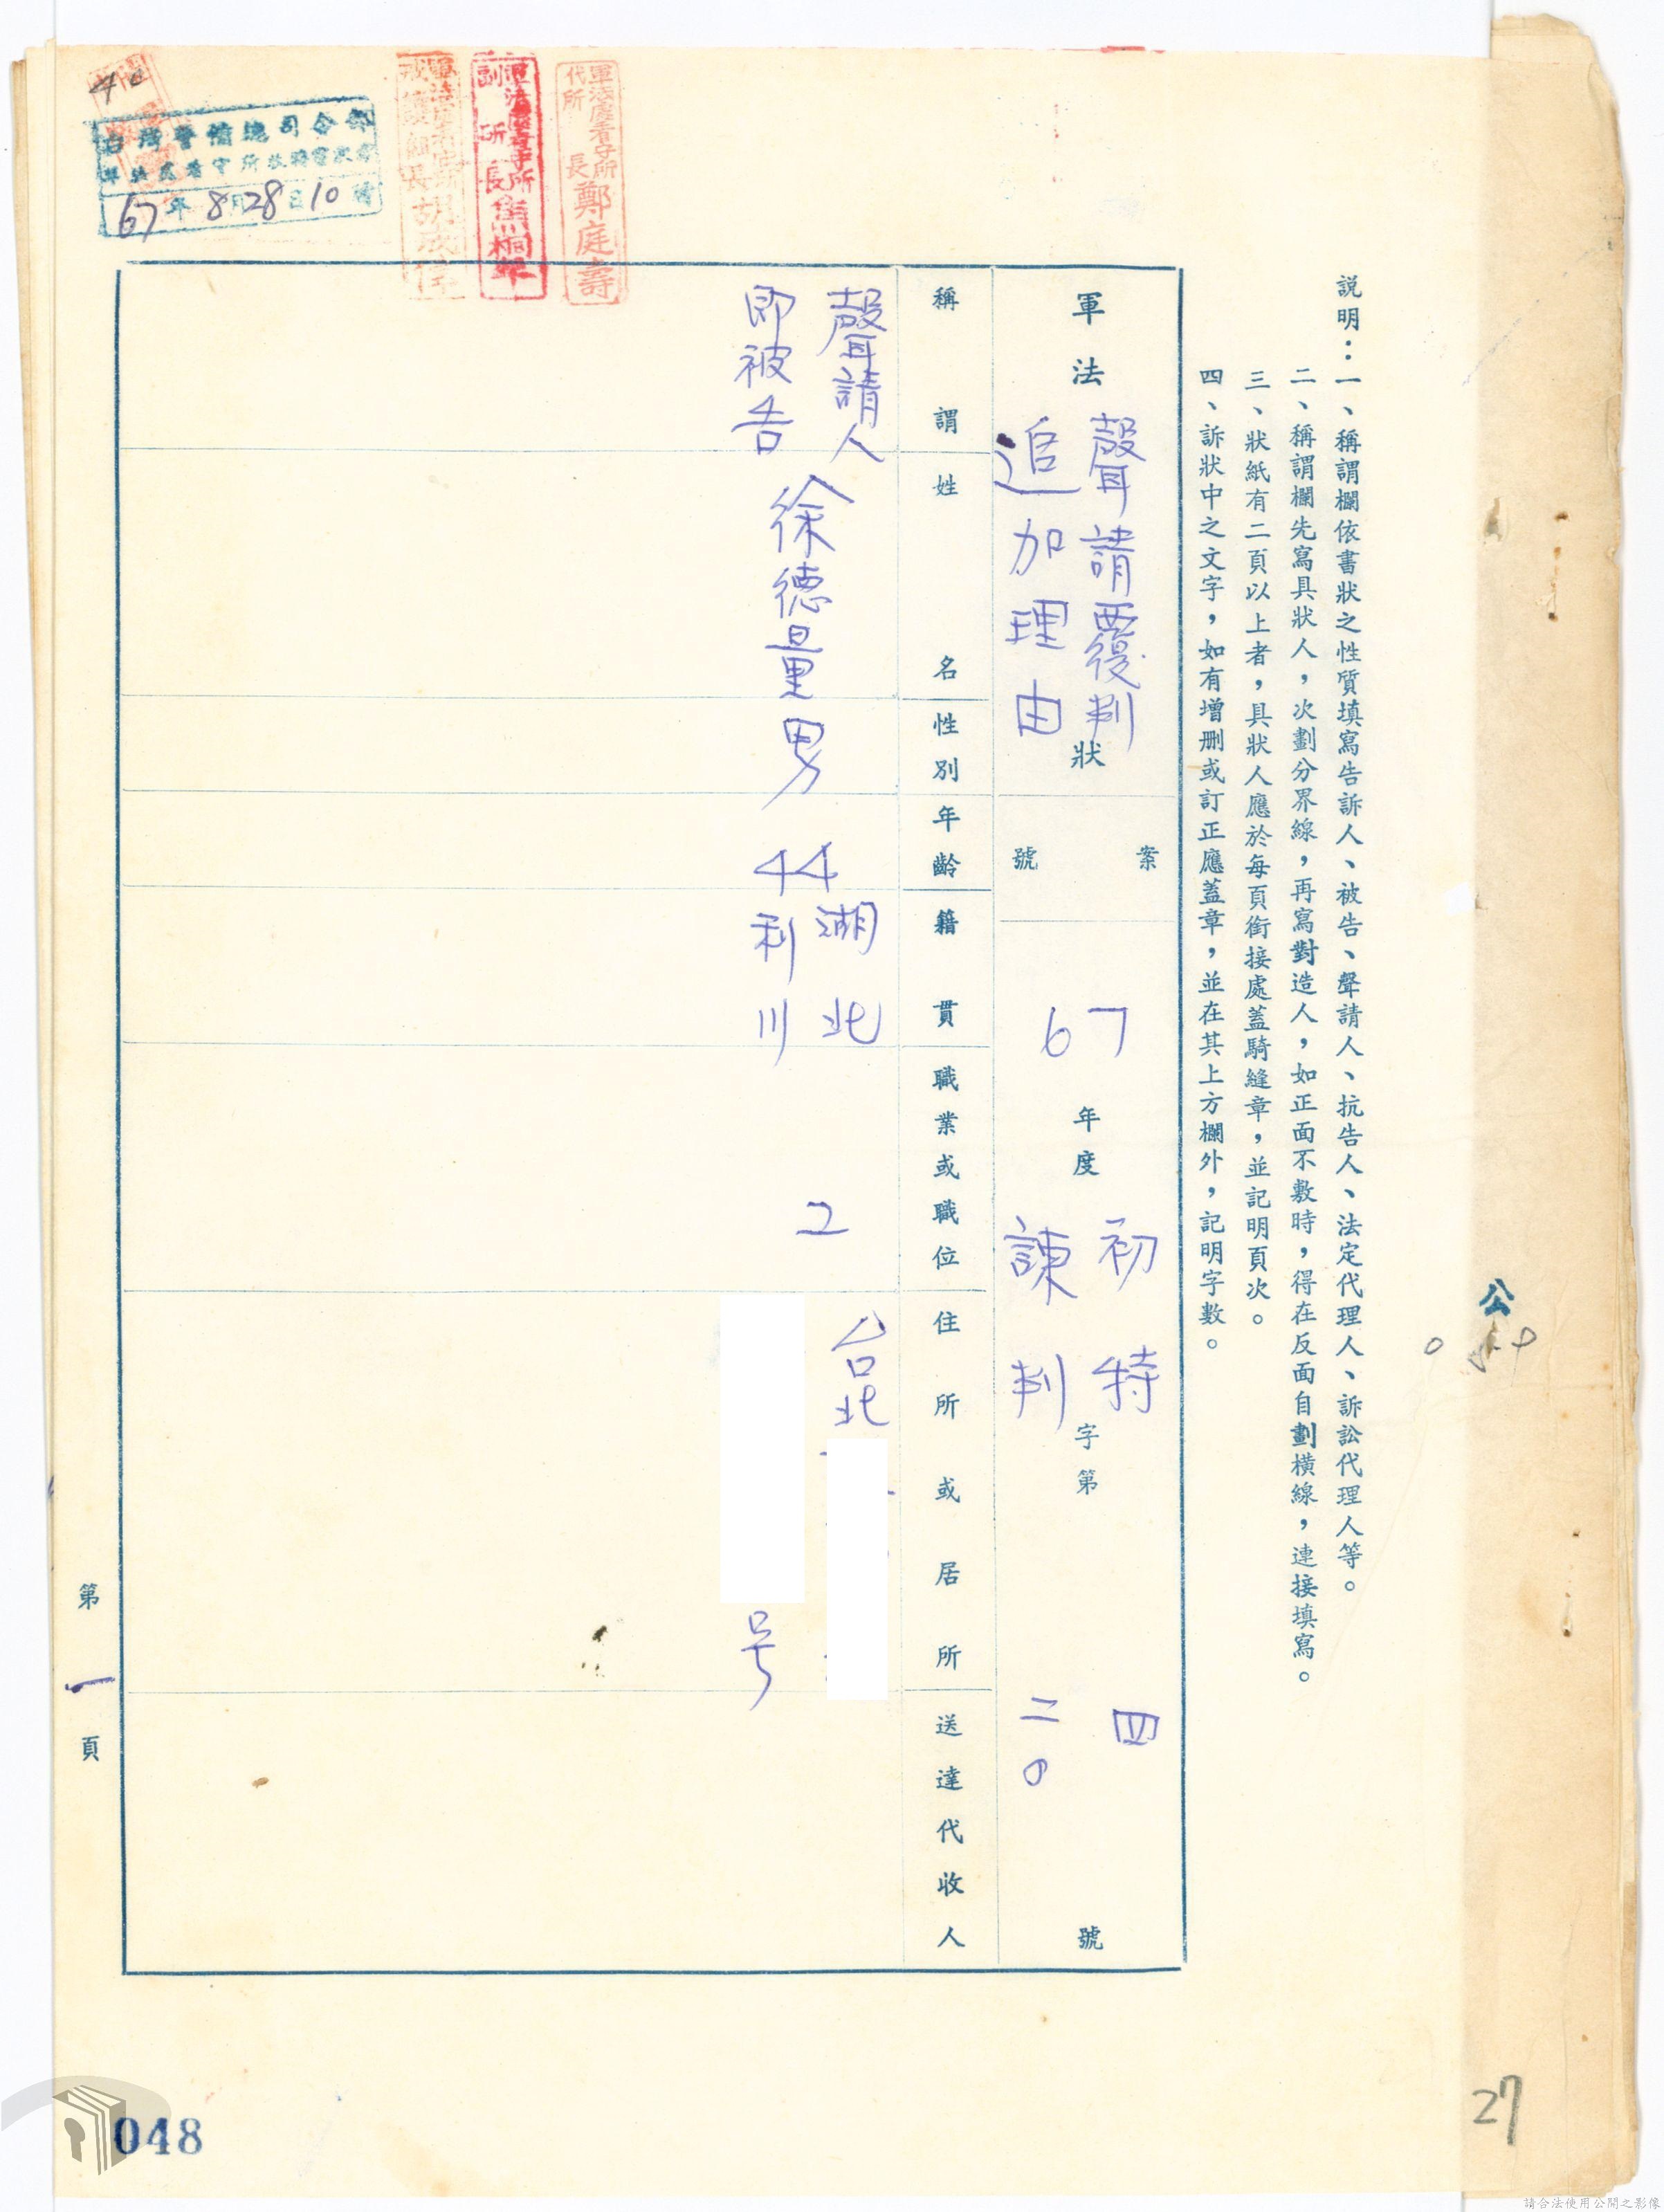 說明：一、稱謂欄依書狀之性質填寫告訴人、被告、聲請人、抗告人、法定代理人、訴訟代理人等。
二、稱謂欄先寫具狀人，次劃分界線，再寫對造人，如正面不敷時，得在反面自劃橫線，連接填寫。
三、狀紙有二頁以上者，具狀人應於每頁銜接處蓋騎縫章，並記明頁次。
四、訴狀中之文字，如有增刪或訂正應蓋章，並在其上方欄外，記明字數。
軍法聲請覆判追加理由狀
案號
67年度初特諫判字第四二0號
稱謂
姓名
性別
年齡
籍貫
職業或職位
住所或居所
送達代收人
聲請人
即被告
徐德量
男
44
湖北
利川
台北
号
軍法處看守所
代所長鄭庭壽
軍法處看守所
副所長
台灣警備總司令部
67年8月28日10時
第一頁
公
27
048
請合法使用公開之影像